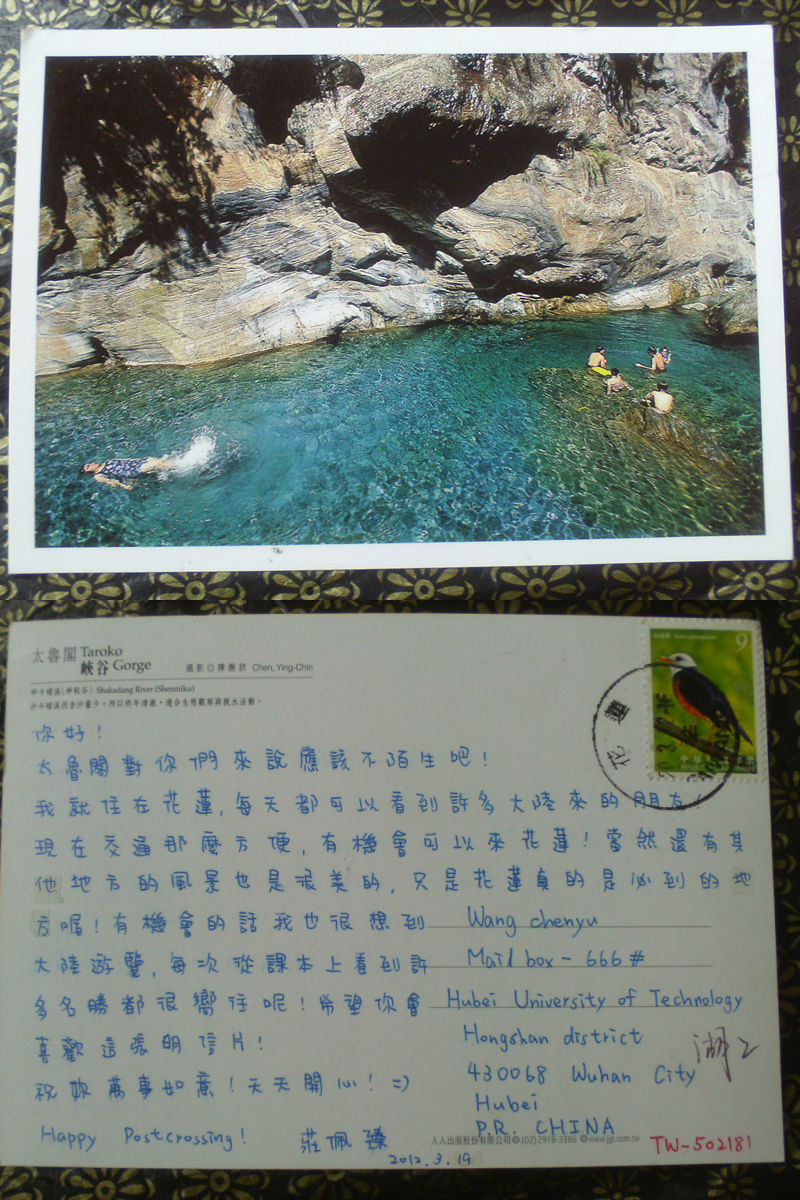 太魯閣 Taroko
峽谷 Gorge
攝影◎陳應欽 Chen, Ying-Chin
砂卡噹溪(神秘谷) Shakadang River (Shenmiku)
沙卡噹溪因含沙量少，所以終年清澈，適合生態觀察與親水活動。
9
花蓮
你好！
太魯閣對你們來說應該不陌生吧！
我就住在花蓮，每天都可以看到許多大陸來的朋友！
現在交通那麼方便，有機會可以來花蓮！當然還有其
他地方的風景也是很美的，只是花蓮真的是必到的地
方喔！有機會的話我也很想到
大陸遊覽，每次從課本上看到許
多名勝都很嚮往呢！希望你會
喜歡這張明信片！
祝妳萬事如意！天天開心！=)
Happy Postcrossing! 莊佩臻
2012.3.19
Wang chenyu
Mail box - 666#
Hubei University of Technology
Hongshan district
430068 Wuhan City
Hubei
P.R. CHINA
湖工
人人出版股份有限公司 (02)2918-3366 www.jjp.com.tw
TW-502181